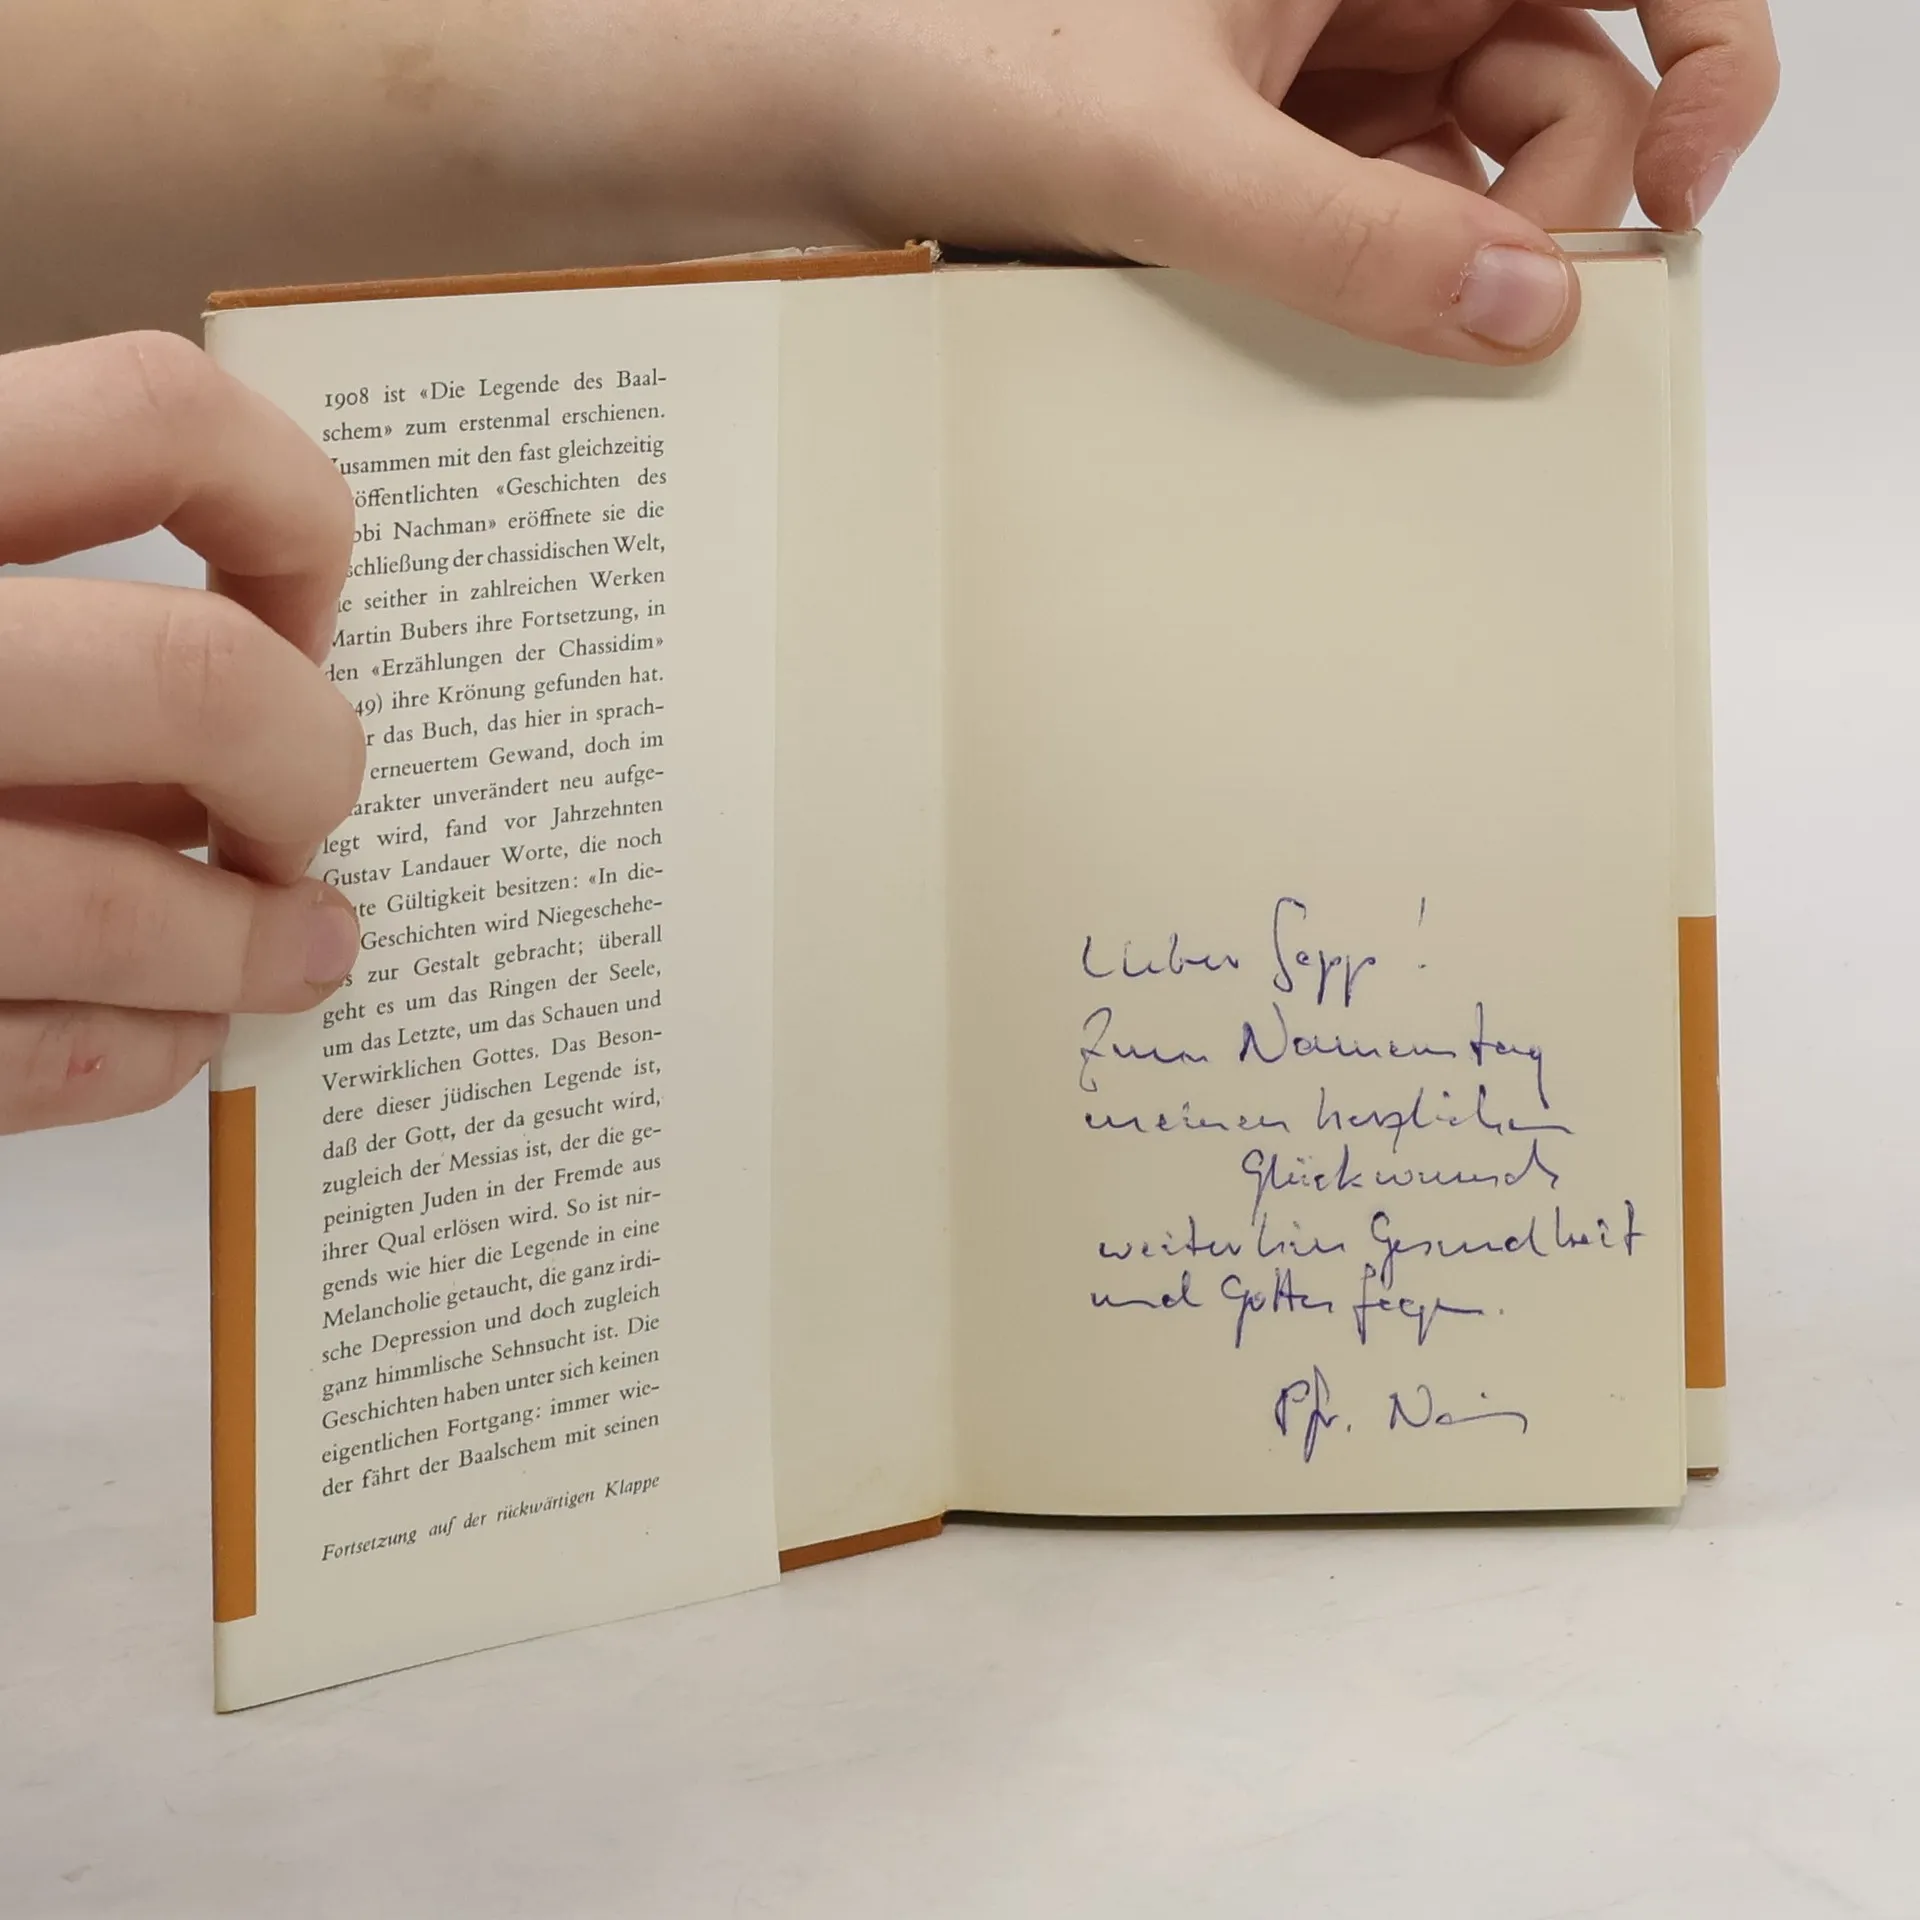 1908 ist «Die Legende des Baal-
schem» zum erstenmal erschienen.
usammen mit den fast gleichzeitig
öffentlichten «Geschichten des
bbi Nachman» eröffnete sie die
schließung der chassidischen Welt,
ie seither in zahlreichen Werken
Martin Bubers ihre Fortsetzung, in
den «Erzählungen der Chassidim»
49) ihre Krönung gefunden hat.
r das Buch, das hier in sprach-
erneuertem Gewand, doch im
arakter unverändert neu aufge-
legt wird, fand vor Jahrzehnten
Gustav Landauer Worte, die noch
te Gültigkeit besitzen: «In die-
Geschichten wird Niegeschehe-
s zur Gestalt gebracht; überall
geht es um das Ringen der Seele,
um das Letzte, um das Schauen und
Verwirklichen Gottes. Das Beson-
dere dieser jüdischen Legende ist,
daß der Gott, der da gesucht wird,
zugleich der Messias ist, der die ge-
peinigten Juden in der Fremde aus
ihrer Qual erlösen wird. So ist nir-
gends wie hier die Legende in eine
Melancholie getaucht, die ganz irdi-
sche Depression und doch zugleich
ganz himmlische Sehnsucht ist. Die
Geschichten haben unter sich keinen
eigentlichen Fortgang: immer wie-
der fährt der Baalschem mit seinen
Fortsetzung auf der rückwärtigen Klappe
Lieber Sepp!
Zum Namenstag
meinen herzlichen
Glückwunsch
weiterhin Gesundheit
und Gottes Segen.
Pfr.